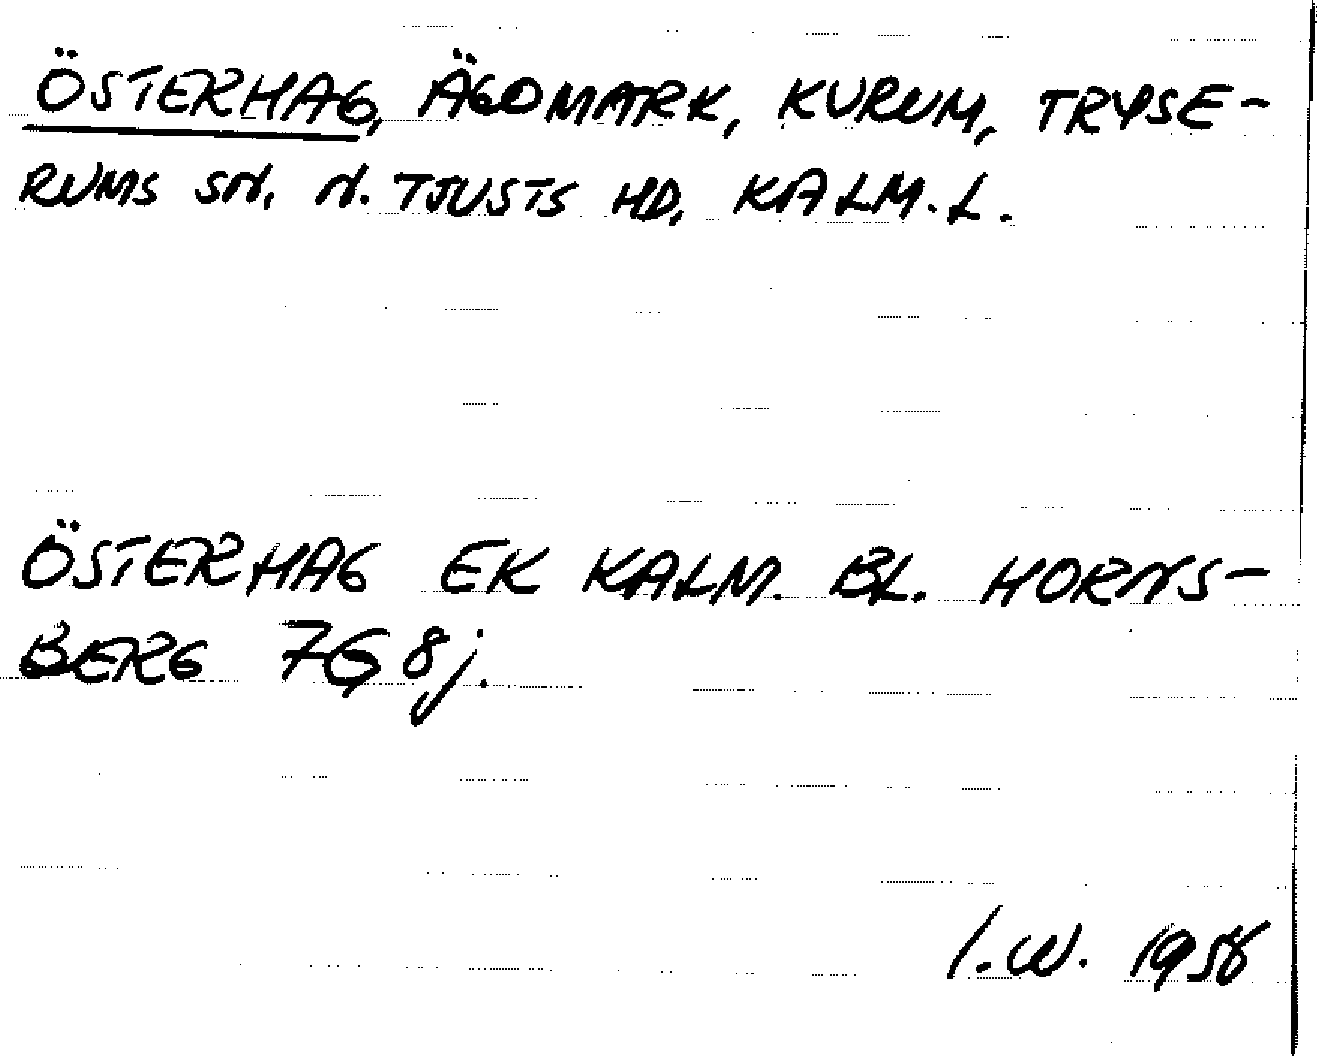 ÖSTERHAG, ÄGOMARK, KURUM, TRYSE-
RUMS SN, N. TJUSTS HD, KALM. L.
ÖSTERHAG EK KALM. BL. HORNS-
BERG 7G 8j.
I.W. 1958